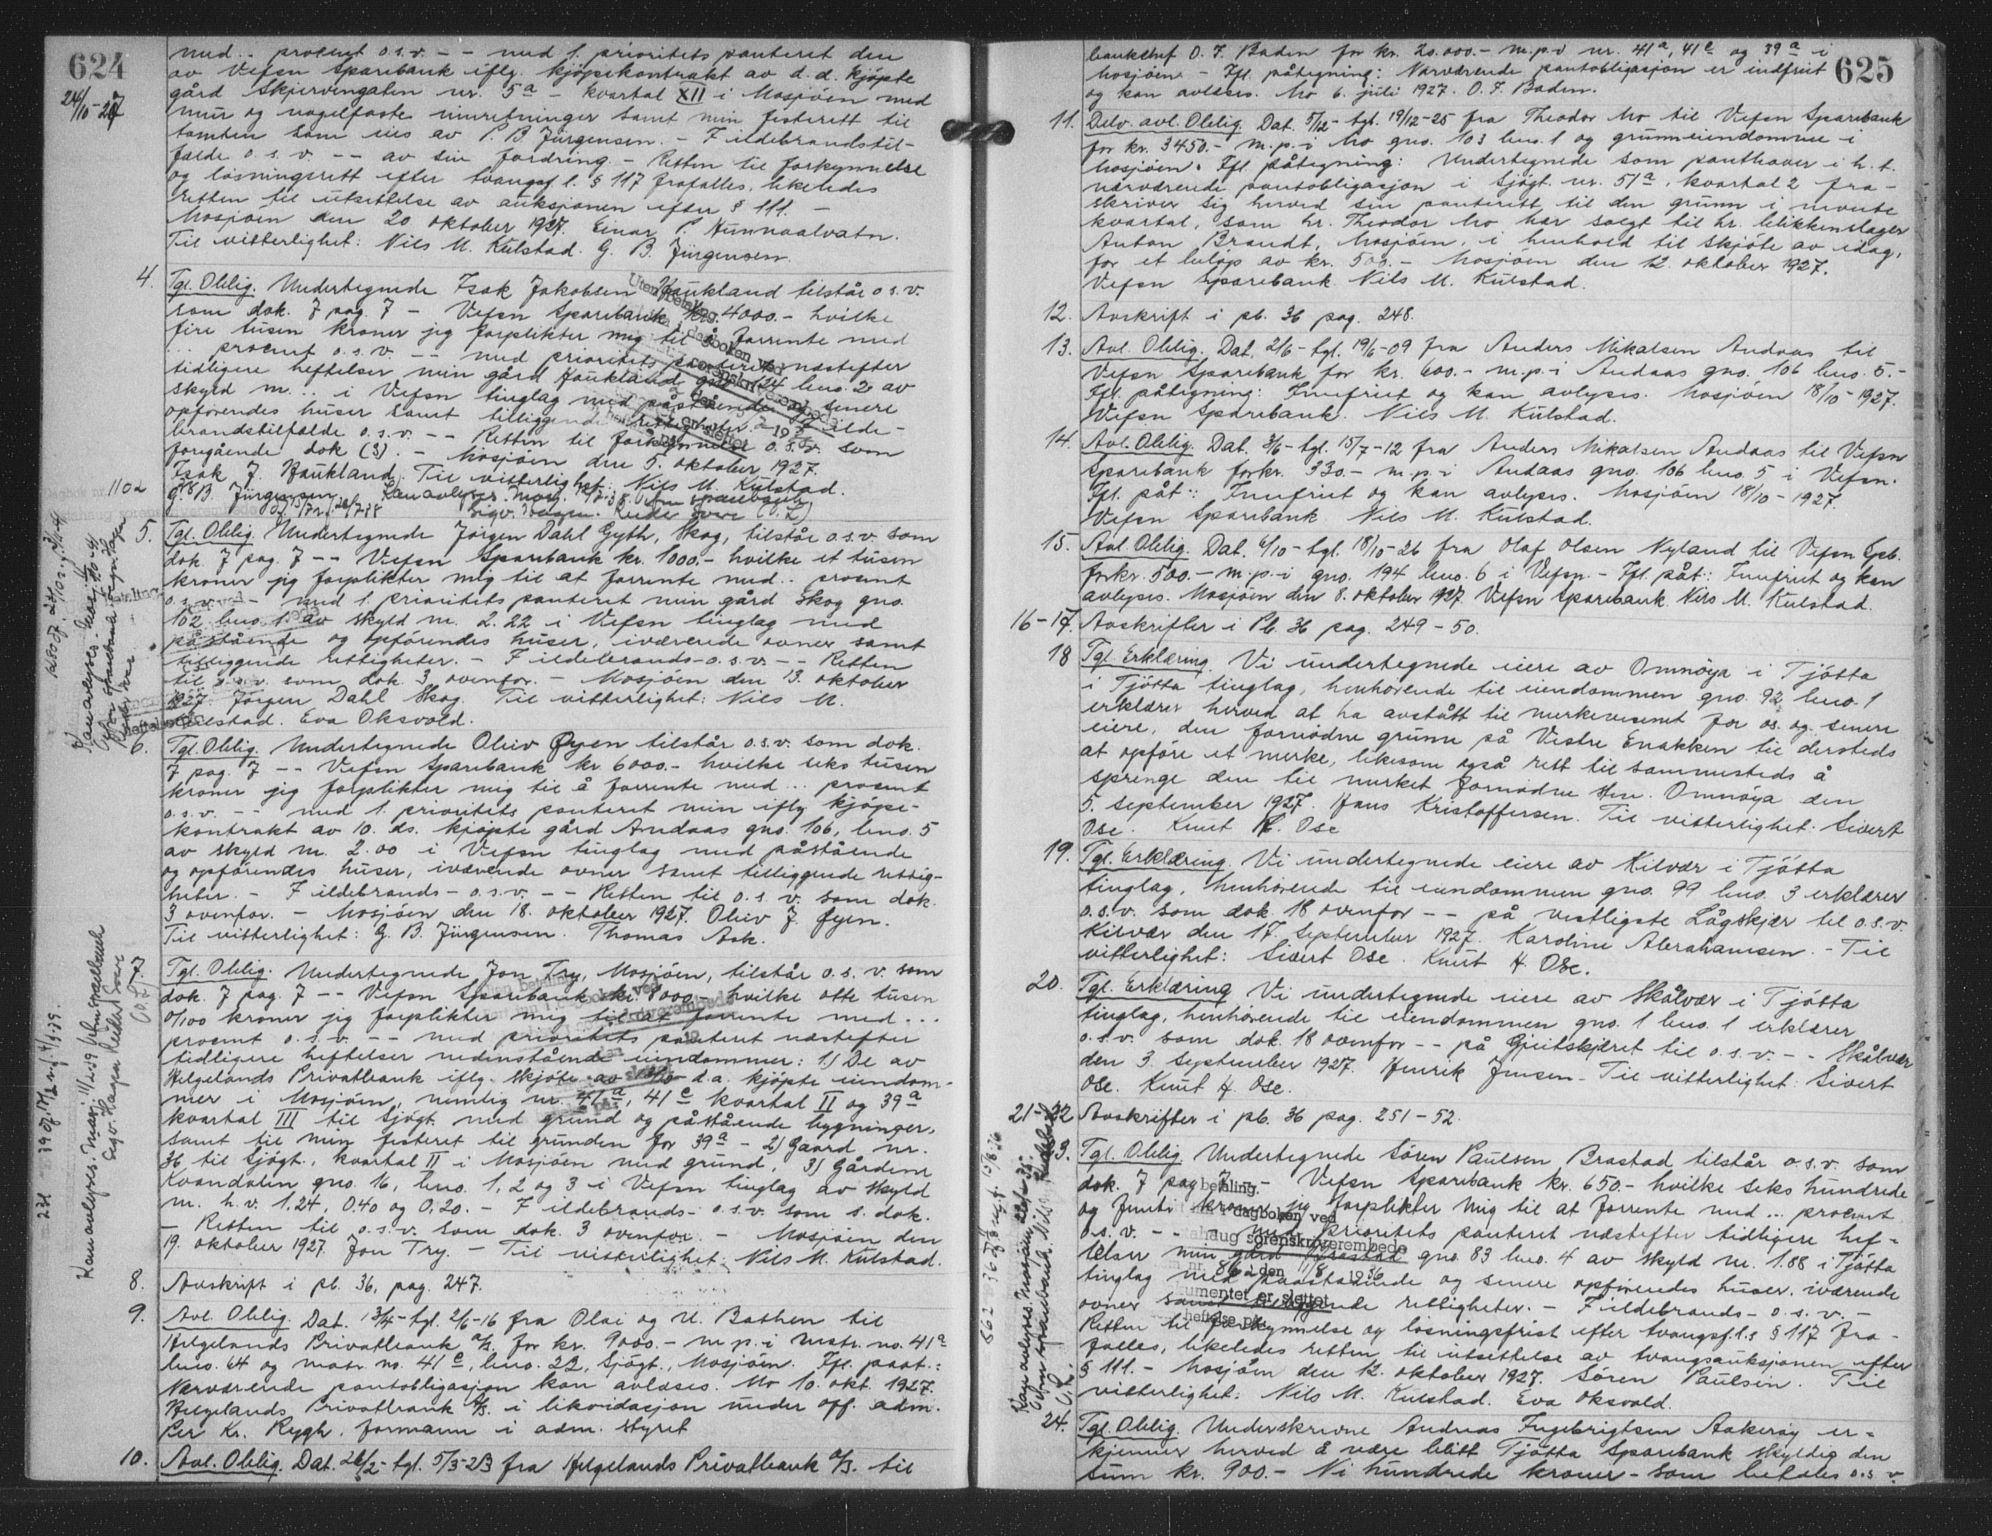 624
24/10-27
med.. procent o.s.v. - - med 1. prioritets panteret den
av Vefsn Sparebank iflg. kjöpekontrakt av d.d. kjöpte
gård Skjervengaten nr. 5a - kvartal XII i Mosjöen med
mur og nagelfaste innretninger samt min festerett til
tomten som eies av P. B. Jürgensen. - I ildebrandstil-
fælde o.s.v. - - av sin fordring. - Retten til forkynnelse
og lösningsrett efter tvangsf.l. § 117 frafalles, likeledes
retten til utsettelse av auksjonen efter § 111. -
Mosjöen den 20 oktober 1927. Einar P. Hunnaalvatn.
Til vitterlighet: Nils M. Kulstad. G. B. Jürgensen.
4. Tgl. Oblig. Undertegnede Isak Jakobsen Haukland tilstår o.s.v.
som dok. 7 pag. 7 - Vefsn Sparebank kr. 4000.- hvilke
fire tusen kroner jeg forplikter mig til å forrente med
... procent o.s.v. - - med prioritets panteret næstefter
tidligere heftelser min gård Haukland gno. 124 bno. 2 av
skyld m. ... i Vefsn tinglag med påstående og senere
opförendes huser samt tilliggende rettigheter. - I ilde-
brandstilfælde o.s.v. - - Retten til forkynnelse o.s.v. som
foregående dok (3). - Mosjöen den 5. oktober 1927.
Isak J. Haukland. Til vitterlighet: Nils M. Kulstad.
G. B. Jürgensen.
1102
5. Tgl. Oblig. Undertegnede Jörgen Dahl Gyth, Skog, tilstår o.s.v. som
dok. 7 pag. 7 - - Vefsn Sparebank kr. 1000.- hvilke et tusen
kroner jeg forplikter mig til at forrente med .. procent
o.s.v. - - med 1. prioritets panteret min gård Skog gno.
102 bno. 1 av skyld m. 2.22 i Vefsn tinglag med
påstående og opförendes huser, iværende ovner samt
tilliggende rettigheter. - I ildebrands- o.s.v. - - Retten
til o.s.v. som dok. 3 ovenfor. - Mosjöen den 13. oktober
1927. Jörgen Dahl Skog. Til vitterlighet: Nils M.
Kulstad. Eva Oksvold.
6. Tgl. Oblig. Undertegnede Oliv Öyen tilstår o.s.v. som dok.
7 pag. 7 - - Vefsn Sparebank kr 6000.- hvilke seks tusen
kroner jeg forplikter mig til å forrente med ... procent
o.s.v. - - med 1. prioritets panteret min iflg kjöpe-
kontrakt av 10. ds. kjöpte gård Andaas gno. 106, bno. 5
av skyld m. 2.00 i Vefsn tinglag med påstående
og opförendes huser, iværende ovner samt tilliggende rettig-
heter. - I ildebrands- o.s.v. - - Retten til o.s.v. som dok.
3 ovenfor. - Mosjöen den 18. oktober 1927. Oliv J. Öyen.
Til vitterlighet: G. B. Jürgensen. Thomas Ask.
Tgl. Oblig. Undertegnede Jon Try, Mosjöen, tilstår o.s.v. som
dok. 7 pag. 7 - - Vefsn Sparebank kr. 8000.- hvilke otte tusen
0/100 kroner jeg forplikter mig til at forrente med ...
procent o.s.v. - - med prioritets panteret næstefter
tidligere heftelser nedenstående eiendommer: 1) De av
Helgelands Privatbank iflg. skjöte av d.a. kjöpte eiendom-
mer i Mosjöen, nemlig nr. 41a, 41c kvartal II og 39a
kvartal III til Sjögt. med grund og påstående bygninger,
samt til min festeret til grunden for 39a - 2) Gaard nr.
36 til Sjögt., kvartal II i Mosjöen med grund, 3) Gårdene
Kvandalen gno. 16, bno. 1, 2 og 3 i Vefsn tinglag av skyld
m. h.v. 1.24, 0.40 og 0.20. - I ildebrands- o.s.v. som s. dok.
- Retten til o.s.v. som dok. 3 ovenfor. - Mosjöen den
19. oktober 1927. Jon Try. - Til vitterlighet: Nils M. Kulstad.
8. Avskrift i pb. 36, pag. 247.
9. Avl. Oblig. Dat. 13/4- tgl. 2/6-16 fra Olai og U. Bathen til
Helgelands Privatbank A/S for kr. 9000.- m.p.i matr. no. 41a
bno. 64 og matr. no. 41c, bno. 22, Sjögt., Mosjöen. Ifl. paat.:
Nærværende pantobligasjon kan avlæses. Mo 10. okt. 1927.
Helgelands Privatbank A/S. i likvidasjon under off. adm.
Per Kr. Rygh, formann i adm. styret
10. Avl. Oblig. Dat. 26/2- tgl. 5/3-23 fra Helgelands Privatbank A/S. til
625
banksjef O. F. Baden for kr. 20.000.- m.p.i nr. 41a, 41c og 39a i
Mosjöen - Ifl. påtegning: Nærværende pantobligasjon er indfriet
og kan avlæses. Mo 6. juli 1927. O. F. Baden.
11. Delv. avl. Oblig. Dat. 5/12- tgl. 19/12-25 fra Theodor Mo til Vefsn Sparebank
for kr. 3450.- m.p.i Mo gno. 103 bno. 1 og grunneiendomme i
Mosjöen. Ifl. påtegning: Undertegnede som panthaver i h. t.
nærværende pantobligasjon i Sjögt. nr. 51a, kvartal 2 fra-
skriver sig herved sin panterett til den grunn i nevnte
kvartal, som hr. Theodor Mo har solgt til hr. blikkenslager
Anton Brandt, Mosjöen, i henhold til skjöte av idag,
for et belöp av kr. 500.- Mosjöen den 12. oktober 1927.
Vefsn Sparebank Nils M. Kulstad.
12. Avskrift i pb. 36 pag. 248.
13. Avl. Oblig. Dat. 2/6- tgl. 19/6-09 fra Anders Mikalsen Andaas til
Vefsn Sparebank for kr. 600.- m.p.i Andaas gno. 106 bno. 5.-
Ifl. påtegning: Innfriet og kan avlyses. Mosjöen 18/10-1927.
Vefsn Sparebank. Nils M. Kulstad.
14. Avl. Oblig. Dat. 3/6- tgl. 15/7-12 fra Anders Mikalsen Andaas til Vefsn
Sparebank for kr. 330.- m.p.i Andaas gno. 106 bno. 5 i Vefsn.
Ifl. påt.: Innfriet og kan avlyses. Mosjöen 18/10-1927.
Vefsn Sparebank Nils M. Kulstad.
15. Avl. Oblig. Dat. 6/10- tgl. 18/10-26 fra Olaf Olsen Nyland til Vefsn Spb.
for kr. 500.- m.p.i gno. 194 bno. 6 i Vefsn. - Ifl. påt.: Innfriet og kan
avlyses. Mosjöen den 8. oktober 1927. Vefsn Sparebank. Nils M. Kulstad.
16-17. Avskrifter i Pb. 36 pag. 249-50.
18 Tgl. Erklæring. Vi undertegnede eiere av Omnöya i Tjötta
i Tjötta tinglag, henhörende til eiendommen gno. 92 bno. 1
erklærer herved at ha avstått til merkevesenet for os og senere
eiere, den fornödne grunn på Vestre Enakken til dersteds
at opföre et merke, likesom også rett til sammesteds å
sprenge den til merket fornödne sten. Omnöya den
5. september 1927. Hans Kristoffersen. Til vitterlighet: Sivert
Ose. Knut H. Ose
19. Tgl. Erklæring. Vi undertegnede eiere av Kilvær i Tjötta
tinglag, henhörende til eiendommen gno. 99 bno. 3 erklærer
o.s.v. som dok. 18 ovenfor - - på vestligste Lågskjær til o.s.v.
Kilvær den 17. september 1927. Karoline Abrahamsen. - Til
vitterlighet: Sivert Ose. Knut H. Ose.
20. Tgl. Erklæring Vi undertegnede eiere av Skålvær i Tjötta
tinglag, henhörende til eiendommen gno. 1 bno. 1 erklærer
o.s.v. som dok. 18 ovenfor - - på Geitskjæret til o.s.v. - - Skålvær
den 3. september 1927. Henrik Jensen - Til vitterlighet: Sivert
Ose. Knut H. Ose.
21-22 Avskrifter i pb. 36 pag. 251-52.
3. Tgl. Oblig. Undertegnede Sören Paulsen Brastad tilstår o.s.v. som
dok. 7 pag. 7 - - Vefsn Sparebank kr. 650.- hvilke seks hundrede
og femti kroner jeg forplikter mig til at forrente med ... procent
o.s.v. - - med prioritets panteret næstefter tidligere hef-
telser min gård Brastad gno. 83 bno. 4 av skyld m. 1.88 i Tjötta
tinglag med paastående og senere opförendes huser, iværende
ovner samt tilliggende rettigheter. - I ildebrands- o.s.v. -
Retten til forkynnelse og lösningsfrist efter tvangsf.l.s § 117 fra-
falles, likeledes retten til utsettelse av tvangsauksjonen efter
§ 111. - Mosjöen den 12. oktober 1927. Sören Paulsen. Til
vitterlighet: Nils M. Kulstad. Eva Oksvold.
24. Tgl. Oblig. Underskrevne Andreas Ingebrigtsen Aakeröy er-
kjenner herved å være blitt Tjötta Sparebank skyldig den
sum kr. 900.- Ni hundrede kroner - som betales o.s.v.